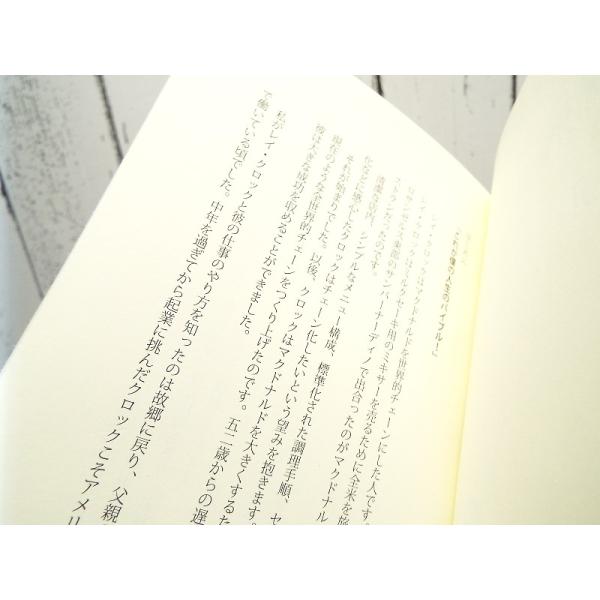 これが僕の人生のバイブル！
レイ・クロックはマクドナルドを世界的チェーンにした人です。
ミルクセーキ用のミキサーを売るために全米を旅
サンバーナーディノで出合ったのがマクドナル
ストランだったのです。
清潔な店内、シンプルなメニュー構成、標準化された調理手順、セ
化などに感心したクロックはチェーン化したいという望みを抱きます。
それが始まりでした。以後、クロックはマクドナルドを大きくするた
現在のような全世界的チェーンをつくり上げたのです。五二歳からの遅
彼は大きな成功を収めることができました。
私がレイ・クロックと彼の仕事のやり方を知ったのは故郷に戻り、父親
て働いている頃でした。中年を過ぎてから起業に挑んだクロックこそアメリ